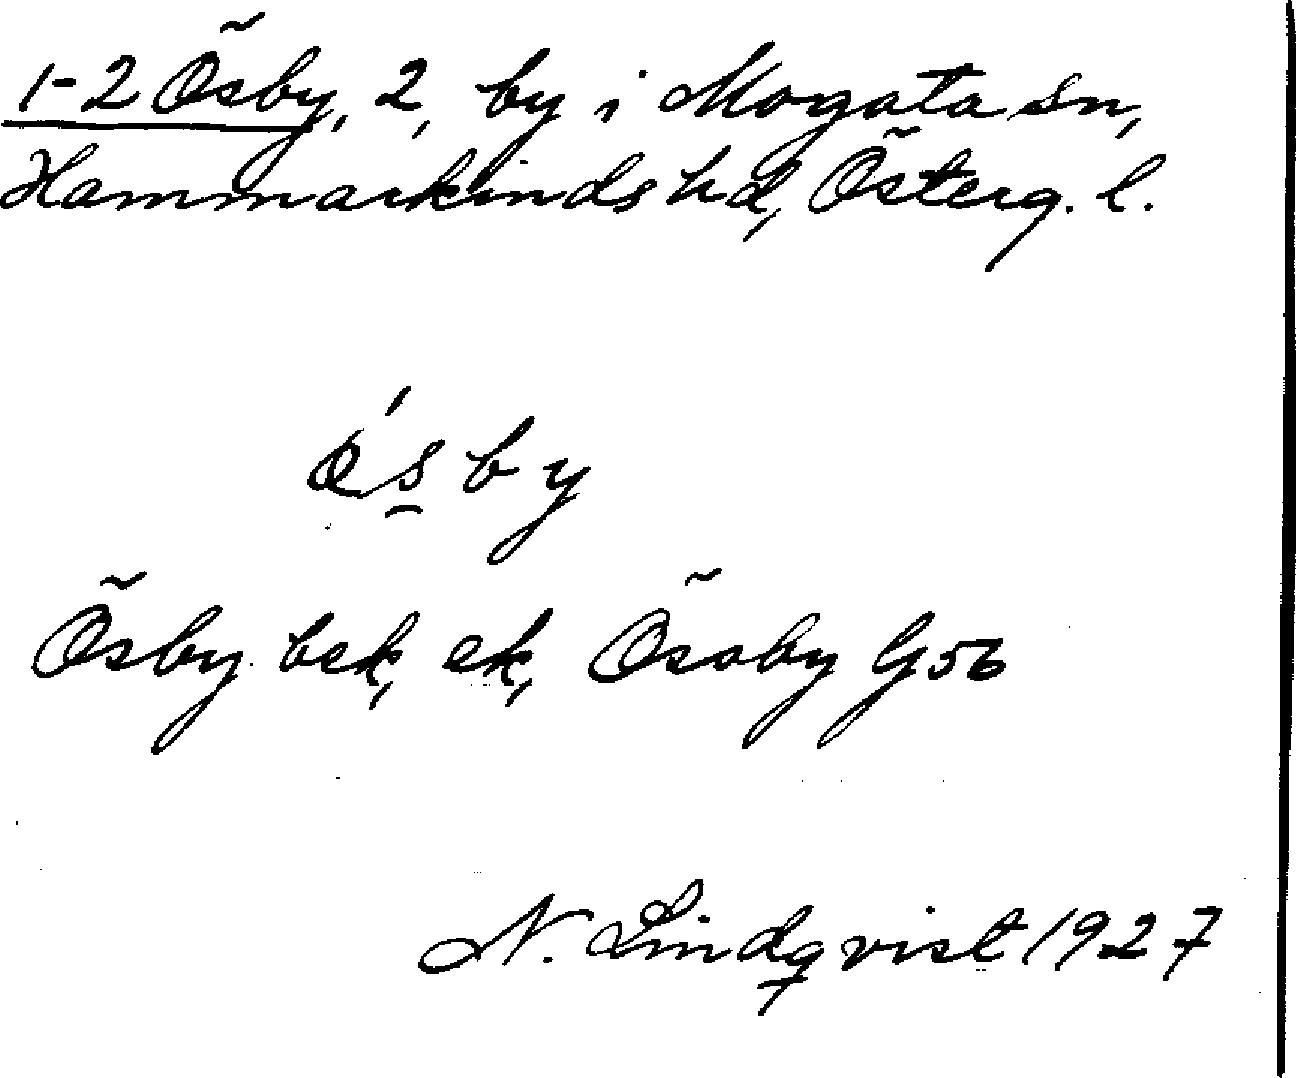 1-2 Ösby, 2, by i Mogata sn,
Hammarkinds hd, Österg. l.
ǿsby
Ösby bek, ek, Ösoby G56
N. Lindqvist 1927